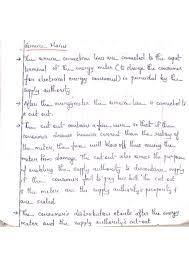 Service Mains
→ The service connection lines are connected to the input
terminal of the energy meter (to charge the consumer
for electrical energy consumed) is provided by the
supply authority.
→ After the energy meter the service line is connected to
a cut out.
→ The cut out contains a fuse wire, so that if the
consumer draws heavier current than the rating of
the meter, then fuse will blow off thus saving the
meter from damage. The cut out also serves the purpose
of enabling the supply authority to disconnect supply
if the consumer fail to pay his bill. The cut out
& the meter are the supply authority's property &
are sealed.
→ The consumer's distribution starts after the energy
meter and the supply authority's cut-out.